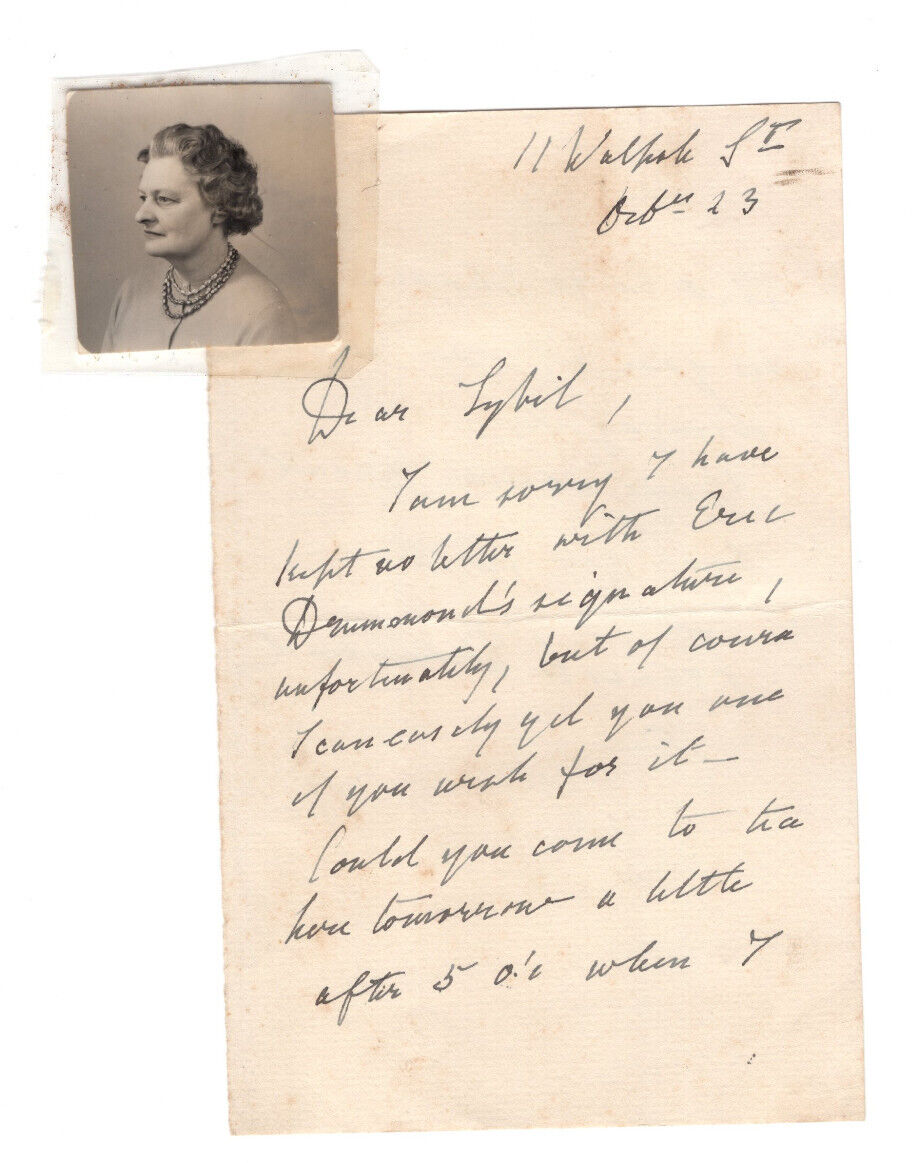 11 Walpole St
Octber 23
Dear Sybil,
I am sorry I have
kept no letter with Eric
Drummond's signature,
unfortunately, but of course
I can easily get you one
if you wish for it —
Could you come to tea
here tomorrow a little
after 5 o'c when I